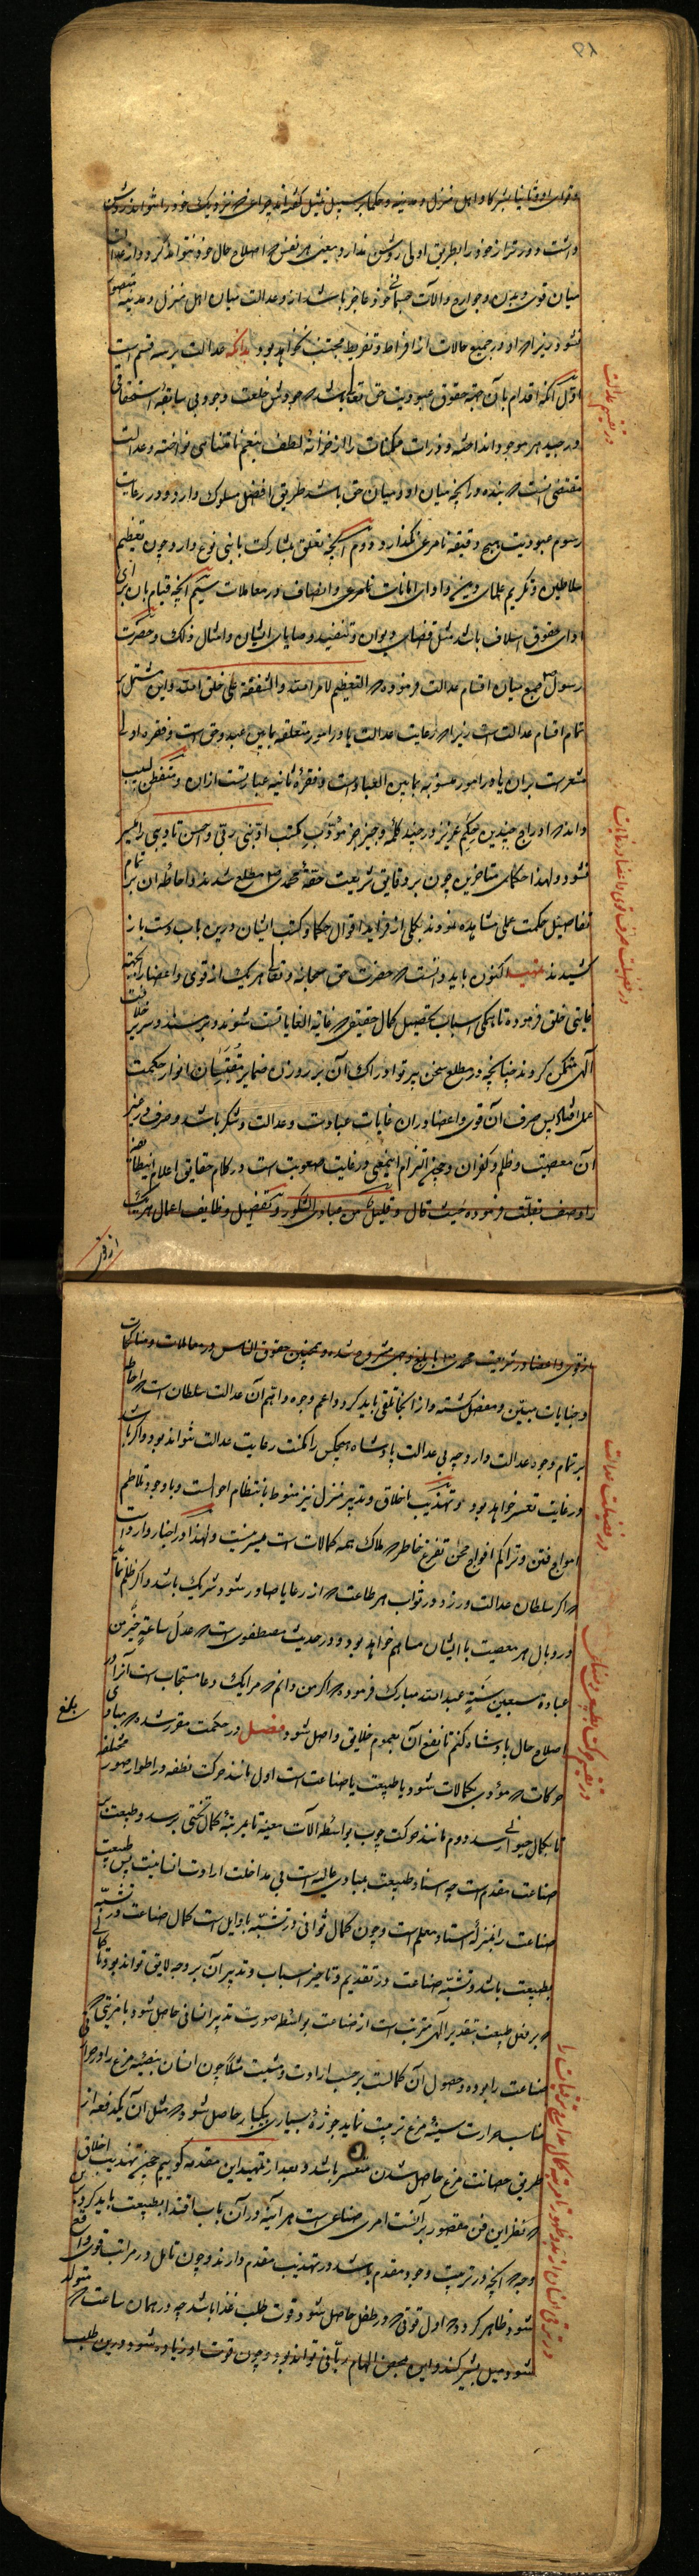 و اقربای او و ثانیا بشرکا و اهل منزل و مدینه و حکما بر سبیل تمثیل گفته اند چراغی که نزدیک خود را نتواند روشن
داشت دورتر از خود را بطریق اولی روشن ندارد یعنی هر نفس که اصلاح حال خود نتواند کرد و از عدالت
میان قوی و بدن و جوارح و آلات جسمانی خود عاجز باشد از و عدالت میان اهل منزل و مدینه متصور
نشود زیرا که او در جمیع حالات از افراط و تفریط مجتنب نخواهد بود بدانکه عدالت بر سه قسم است
اول آنکه اقدام بآن جهة حقوق عبودیت حق تعالی باشد که جودش خلعت وجود بی سابقه استحقاقی
در جید هر موجود انداخته و ذرات ممکنات را از خزانه لطف بنعم نامتناهی نواخته و عدالت
مقتضی آنست که بنده در آنچه میان او و میان حق باشد طریق افضل مسلوک دارد و در رعایت
رسوم عبودیت هیچ دقیقه نامرعی نگذارد دوم آنچه تعلق بمشارکت با بنی نوع دارد چون تعظیم
سلاطین و تکریم علمای دین و ادای امانات و انصاف در معاملات سیم آنچه قیام بان برای
ادای حقوق اسلاف باشد مثل قضای دیوان و تنفیذ وصایای ایشان و امثال ذلک و حضرت
رسول صلعم جمع میان اقسام عدالت فرموده که التعظیم لامر الله و الشفقة علی خلق الله و این مشتمل بر
تمام اقسام عدالت است زیرا که رعایت عدالت یا در امور متعلقه بما بین عبد و حق است و فقره اولی
مشعرست بران یا در امور منسوبه بما بین العباد است و فقرهٔ ثانیه عبارتست ازان و متفطن لبیب
داند که ادراج چندین حکم عزیز در چند کلمهٔ وجیز جز مؤدَب بمکتب ادّبنی ربّی و احسن تادیبی را میسر
نشود و لهذا حکمای متاخرین چون بر دقایق شریعت حقهٔ محمدی صلعم مطلع شدند و احاطهٔ ان بر تمام
تفاصیل حکمت عملی مشاهده نمودند بکلی از فراید اقوال حکما و کتب ایشان درین باب دست باز
کشیدند تنبیه اکنون باید دانست که حضرت حق سبحانه و تعالی هر یک از قوی و اعضا را بجهة
غایتی خلق فرموده تا بهمگی اسباب تحصیل کمال حقیقی که غایة الغایات است شوند و بر مسند و سریر خلافت
الهی متمکن گردند چنانچه در مطلع سخن پرتو ادراک آن بر روزن ضمایر مقتبسان انوار حکمت
عملی افتاد پس صرف آن قوی و اعضا دران غایات عبادت و عدالت و شکر باشد و صرف در غیر
آن معصیت و ظلم و کفران و چون التزام اینمعنی در غایت صعوبت است در کلام حقایق اعلام این طایفه
را وصف بقلت فرموده حیث قال و قلیل من عبادی الشکور و تفصیل وظایف اعمال هر یک
از قوی
در تقسیم عدالت
در فضیلت صرف قوی و اعضا در غایات
از قوی و اعضا در شریعت محمدی صلعم بابلغ وجهی مشروح شده و همچنین حقوق الناس در معاملات و مناکحات
و جنایات مبین و مفصل گشته و از انجا تلقی باید کرد و اعم وجوه و اتم آن عدالت سلطان است که احاطه
بر تمام وجوه عدالت دارد چه بی عدالت پادشاه هیچکس را مکنت رعایت عدالت نتواند بود و اگر باشد
در غایت تعسر خواهد بود و تهذیب اخلاق و تدبیر منزل نیز منوط بانتظام احوالست و با وجود تلاطم
امواج فتن و تراکم افواج محن تفرغ خاطر که ملاک همه کمالات است میسر نیست و لهذا در اخبار وارد است
که اگر سلطان عدالت ورزد در ثواب هر طاعت که از رعایا صادر شود شریک باشد و اگر ظلم نماید
در وبال هر معصیت با ایشان مساهم خواهد بود و در حدیث مصطفوی است که عدل ساعة خیر من
عبادة سبعین سنة عبدالله مبارک فرموده که اگر من دانم که مرا یک دعا مستجاب است آنرا در
اصلاح حال پادشاه کنم تا نفع آن بعموم خلایق واصل شود فصل در حکمت مقرر شده که مبادی
حرکات که مؤدی بکمالات شود یا طبیعت یا صناعت است اول مانند حرکت نطفه در اطوار صور مختلفه
تا بکمال حیوانی رسد دوم مانند حرکت چوب بواسطه آلات معینه تا بمرتبهٔ کمال تختی برسد و طبیعت بر
صناعت مقدم است چه استناد طبیعت بمبادی عالیه است بی مداخلت ارادت انسانیت پس طبیعت
صناعت را بمنزله استاد و معلم است و چون کمال ثوانی در تشبّه باوایل است کمال صناعت در تشبّه
بطبیعت باشد و تشبّه صناعت در تقدیم و تاخیر اسباب و تدبیر آن بر وجه لایق تواند بود تا کمالی
که بر فعل طبیعت بتقدیر الهی مترتب است از صناعت بواسطه صورت تدبیر انسانی حاصل شود با مزیتی که
صناعت را بوده و حصول آن کمالست بر حسب ارادت و مشیت مثلا چون انسان بیضهٔ مرغ را در حرارتی
مناسب حرارت سینهٔ مرغ تربیت نماید جوژهٔ بسیاری بیکبار حاصل شود که مثل آن یکدفعه از
طریق حضانت مرغ حاصل شدن متعسر باشد و بعد از تمهید این مقدمه گوییم چون تهذیب اخلاق
که نظر این فن مقصور بر آنست امری صناعی است هر آینه در آن باب اقتدا بطبیعت باید کرد باین
وجه که آنچه در ترتیب وجود مقدم باشد در تهذیب مقدم دارند و چون تامل در مراتب قوی واقع
شود ظاهر گردد که اول قوتی که در طفل حاصل شود قوت طلب غذا باشد چه در همان ساعت که متولد
شود میل بشیر کند و این محض الهام ربانی تواند بود و چون قوت او زیاده شود درین طلب
در فضیلت عدالت
بلغ